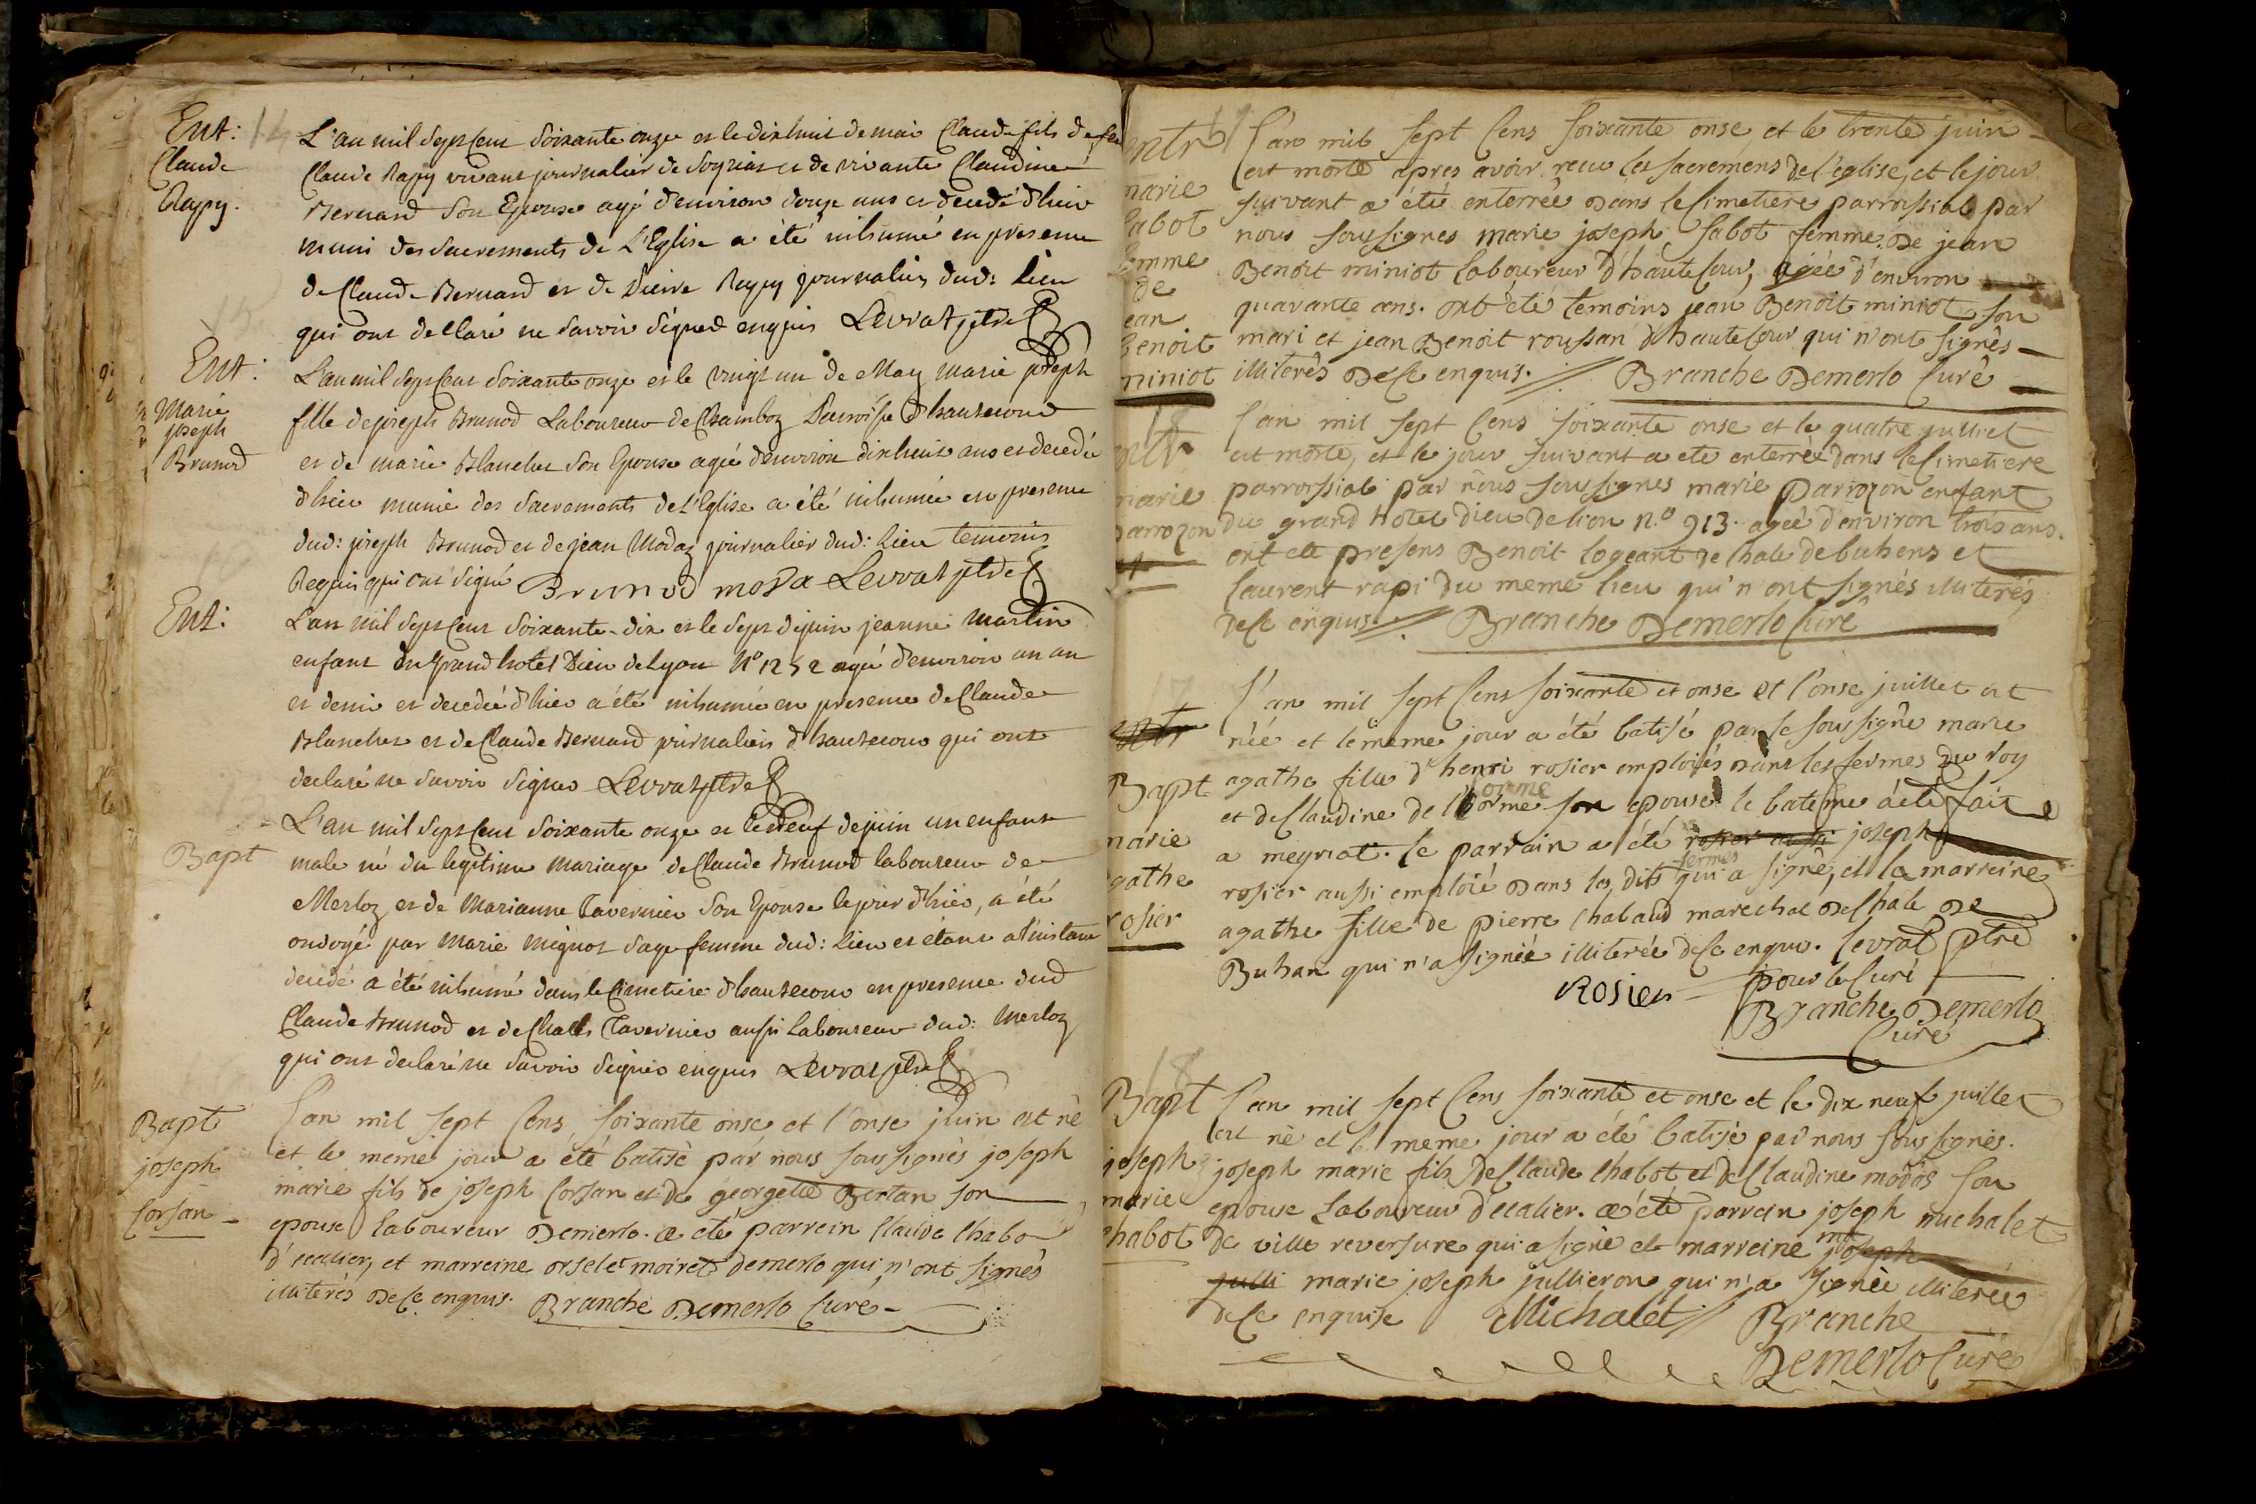 Ent: 14
Claude
Rapy.
L'an mil sept cent soixante onze et le dix huit de mai Claude fils de feu
Claude Rapy vivant journalier de Soyriat et de vivante Claudine
Bernard son Epouse agé d'environ douze ans et decedé d'hier
muni des sacrements de L'Eglise a été inhumé en presence
de Claude Bernard et de Pierre Rapy journaliers dud: Lieu
qui ont declaré ne savoir signer enquis Levrat ptre
Ent:
Marie
joseph
Brunod
L'an mil sept cent soixante onze et le vingt un de May marie joseph
fille de joseph Brunod Laboureur de Chamboz Parroisse d'hautecour
et de marie Blanchet son Epouse agée d'environ dix huit ans et decedée
d'hier munie des sacrements de L'Eglise a été inhumée en presence
dud: joseph Brunod et de jean Modaz journalier dud: Lieu temoins
Requis qui ont signé Brunod moda Levrat ptre
Ent:
L'an mil sept cent soixante-dix et le sept de juin jeanne Martin
enfant du Grand hotel Dieu de Lyon N° 1252 agée d'environ un an
et demi et decedée d'hier a été inhumée en presence de Claude
Blanchet et de Claude Bernard journaliers d'hautecour qui ont
declaré ne savoir signer Levrat ptre
Bapt
L'an mil sept cent soixante onze et le neuf de juin un enfant
male né du legitime mariage de Claude Brunod laboureur de
Merloz et de Marianne Tavernier son Epouse le jour d'hier, a été
ondoyé par Marie Mignot sage femme dud: Lieu et étant a l'instant
decedé a été inhumé dans le Cimetiere d'hautecour en presence dud
Claude Brunod et de Charles Tavernier aussi Laboureur dud: Merloz
qui ont declaré ne savoir signer enquis Levrat ptre
Bapt
joseph
Corsan
L'an mil sept Cens soixante onse et l'onse juin est nè
et le meme jour a été batisè par nous soussignès joseph
marie fils de joseph Corsan et de georgette Bertan son
epouse laboureur Demerlo. a eté parrein Claude Chabo
d'ecalier, et marreine orselet moiret demerlo qui n'ont signès
illiterés De Ce enquis. Branche Demerlo Curé
entr
marie
sabot
femme
de
jean
Benoit
miniot
L'an mil sept Cens soixante onse et le trente juin
est morte apres avoir recu les sacremens de l'église, et le jour
suivant a été enterrée Dans le Cimetiere parroissial par
nous soussignes marie joseph sabot femme De jean
Benoit miniot laboureur d'hautecour, agée d'environ
quarante ans. ont été temoins jean Benoit miniot son
mari et jean Benoit roussan d'hautecour qui n'ont signès
illiterés De Ce enquis. Branche Demerlo Curê
18
entr
marie
parrozon
L'an mil sept Cens soixante onse et le quatre juillet
est morte, et le jour suivant a ete enterrée dans le Cimetiere
parroissial par nous soussignes marie parrozon enfant
du grand hotel dieu de lion N.° 913. ageé d'environ trois ans.
ont ete presens Benoit logeant de Chale de buhens et
laurent rapi du meme lieu qui n'ont signés illiterés
de Ce enquis. Branche Demerlo Curê
17
entr
Bapt
marie
agathe
rosier
L'an mil sept Cens soixante et onse et l'onse juillet est
née et le meme jour a été batisé par le soussigne marie
agathe fille d'henri rosier emploiés dans les fermes du roy
et de Claudine de l'orme son epouse. le bateme a été fait
a meyriat. le parrain a été rosier aussi joseph
rosier aussi emploié dans les dits fermes qui a signé, et la marreine
agathe fille de pierre Chabaud marechal de Chale De
Buhan qui n'a signée illiterée de Ce enquis. levrat ptre
pour le Curé
Rosier
Branche Demerlo
Curé
18
Bapt
joseph
marie
Chabot
L'an mil sept Cens soixante et onse et le dix neuf juillet
est né et le meme jour a été batisé par nous soussignès.
joseph marie fils de Claude Chabot et de Claudine modos son
epouse Laboureur d'ecalier. a été parrein joseph michalet
de ville reversure qui a signé et marreine joseph
julli marie joseph jullieron qui n'a signée illiterée
de Ce enquise Michalet Branche
Demerlo Curé